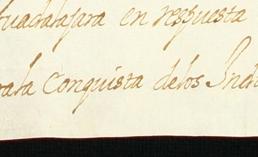 Guadalajara en respuesta
para la Conquista delos Indi